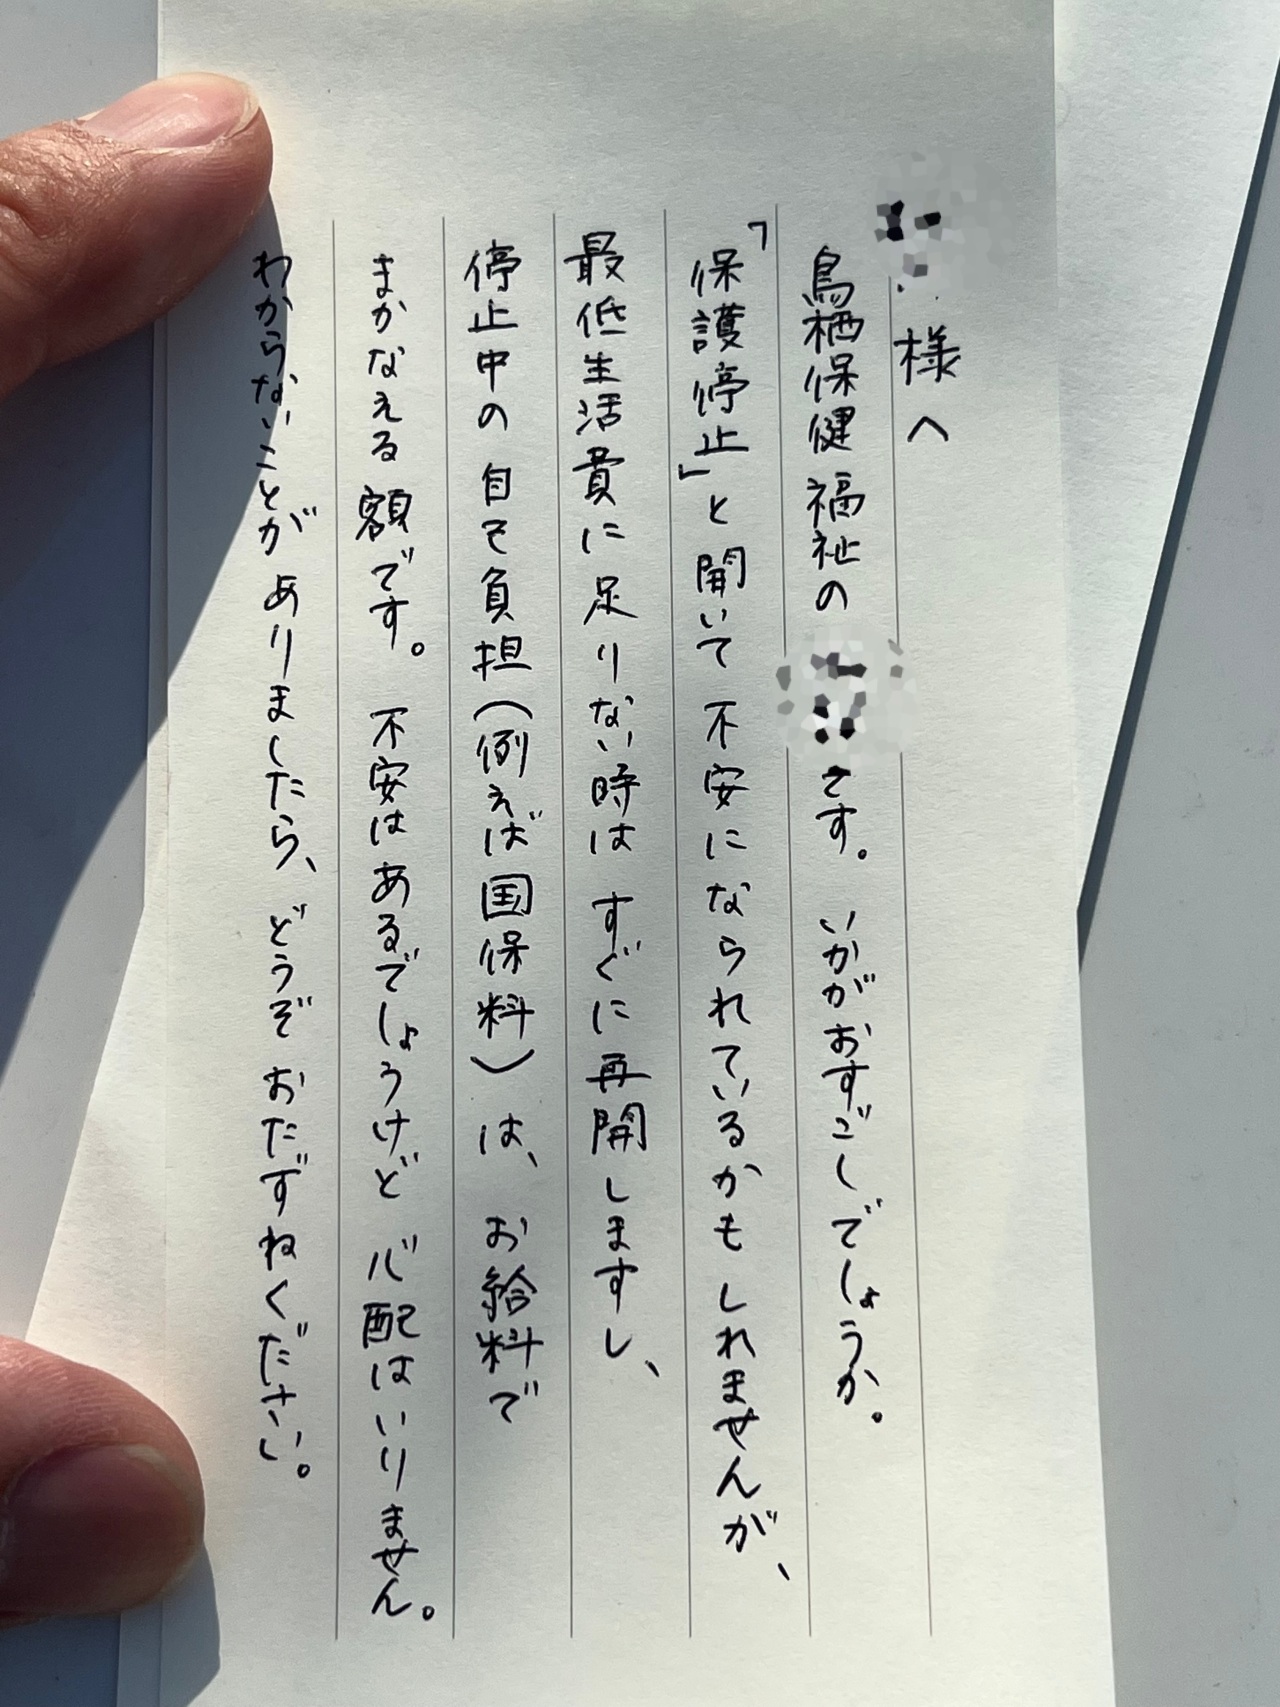 様へ
鳥栖保健福祉の です。いかがおすごしでしょうか。
「保護停止」と聞いて不安になられているかもしれませんが、
最低生活費に足りない時はすぐに再開しますし、
停止中の自己負担(例えば国保料)は、お給料で
まかなえる額です。不安はあるでしょうけど心配はいりません。
わからないことがありましたら、どうぞおたずねください。